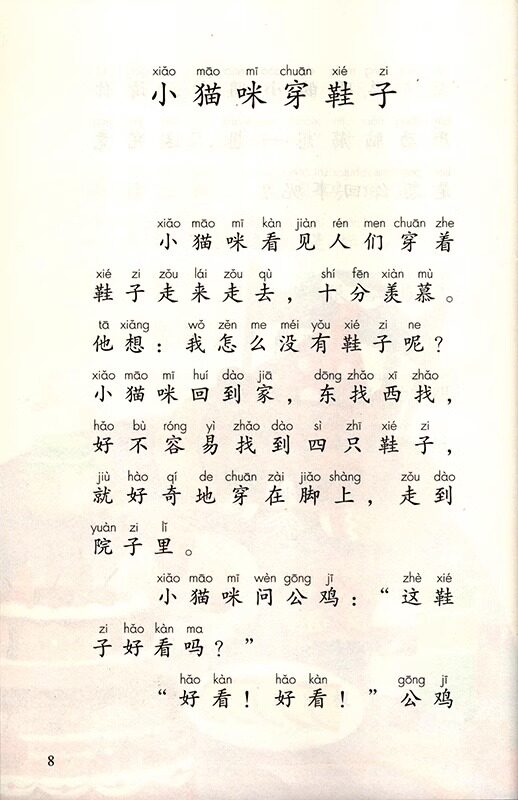 xiǎo māo mī chuān xié zi
小猫咪穿鞋子
xiǎo māo mī kàn jiàn rén men chuān zhe
小猫咪看见人们穿着
xié zi zǒu lái zǒu qù shí fēn xiàn mù
鞋子走来走去，十分羡慕。
tā xiǎng wǒ zěn me méi yǒu xié zi ne
他想：我怎么没有鞋子呢？
xiǎo māo mī huí dào jiā dōng zhǎo xī zhǎo
小猫咪回到家，东找西找，
hǎo bù róng yì zhǎo dào sì zhī xié zi
好不容易找到四只鞋子，
jiù hào qí de chuān zài jiǎo shàng zǒu dào
就好奇地穿在脚上，走到
yuàn zi lǐ
院子里。
xiǎo māo mī wèn gōng jī zhè xié
小猫咪问公鸡：“这鞋
zi hǎo kàn ma
子好看吗？”
hǎo kàn hǎo kàn gōng jī
“好看！好看！”公鸡
8